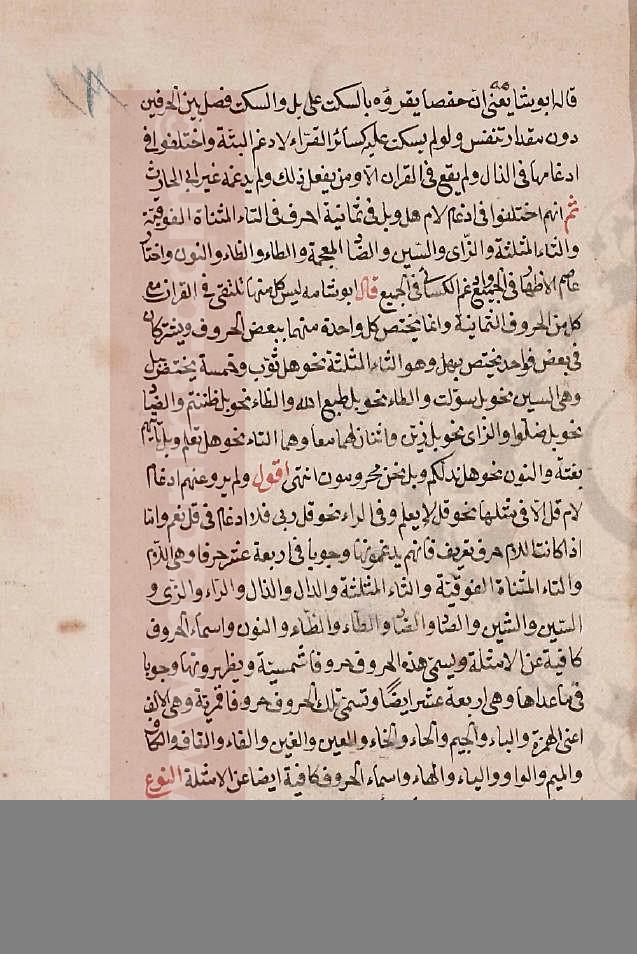 قاله ابو شامه يعني ان حفصا يقرؤه بالسكت على بل والسكت فصل بين الحرفين
دون مقدار تنفس ولو لم يسكت عليه كسائر القراء لادغم البتة واختلفوا في
ادغامها في الذال ولم يقع في القران الا ومن يفعل ذلك ولم يدغمه غير ابي الحارث
ثم انهم اختلفوا في ادغام لام هل وبل في ثمانية احرف في التاء المثناة الفوقية
والثاء المثلثة والزاي والسين والضاد المعجمة والطاء والظاء والنون واختار
عاصم الاظهار في الجميع وادغم الكسائي في الجميع قال ابو شامه ليس كل منها تلتقي في القران مع
كل من الحروف الثمانية وانما يختص كل واحدة منهما ببعض الحروف ويشتركان
في بعض فواحد يختص بهل وهو الثاء المثلثة نحو هل ثوب وخمسة يختص ببل
وهي السين نحو بل سولت والطاء نحو بل طبع الله والظاء نحو بل ظننتم والضاد
نحو بل ضلوا والزاي نحو بل زين واثنان لهما معا وهما التاء نحو هل تعلم وبل تاتيهم
بغتة والنون نحو هل ندلكم وبل نحن محرومون انتهى اقول ولم يرو عنهم ادغام
لام قل الا في مثلها نحو قل لا يعلم وفي الراء نحو قل ربي فلا ادغام في قل نعم واما
اذا كانت اللام حرف تعريف فانهم يدغمونها وجوبا في اربعة عشر حرفا وهي اللام
والتاء المثناة الفوقية والثاء المثلثة والدال والذال والراء والزاي و
السين والشين والصاد والضاد والطاء والظاء والنون واسماء الحروف
كافية عن الامثلة ويسمى هذه الحروف حروفا شمسية ويظهرونها وجوبا
في ما عداها وهي اربعة عشر ايضا وتسمى تلك الحروف حروفا قمرية وهي الالف
اعني الهمزة والباء والجيم والحاء والخاء والعين والغين والفاء والقاف والكاف
والميم والواو والياء والهاء واسماء الحروف كافية ايضا عن الامثلة النوع